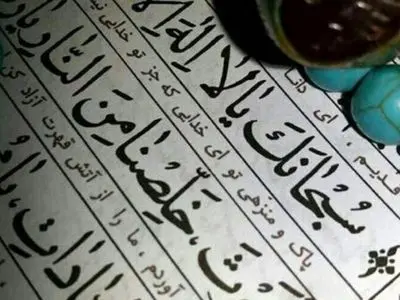 ای
سُبْحٰانَكَ يٰا لاٰ اِلٰهَ اِلاّٰ
پاک و منزهی تو ای خدایی که جز تو خدایی
خَلِّصْنٰا مِنَ النّٰارِ يٰا
آوردم، ما را از آتش قهرت آزاد کن